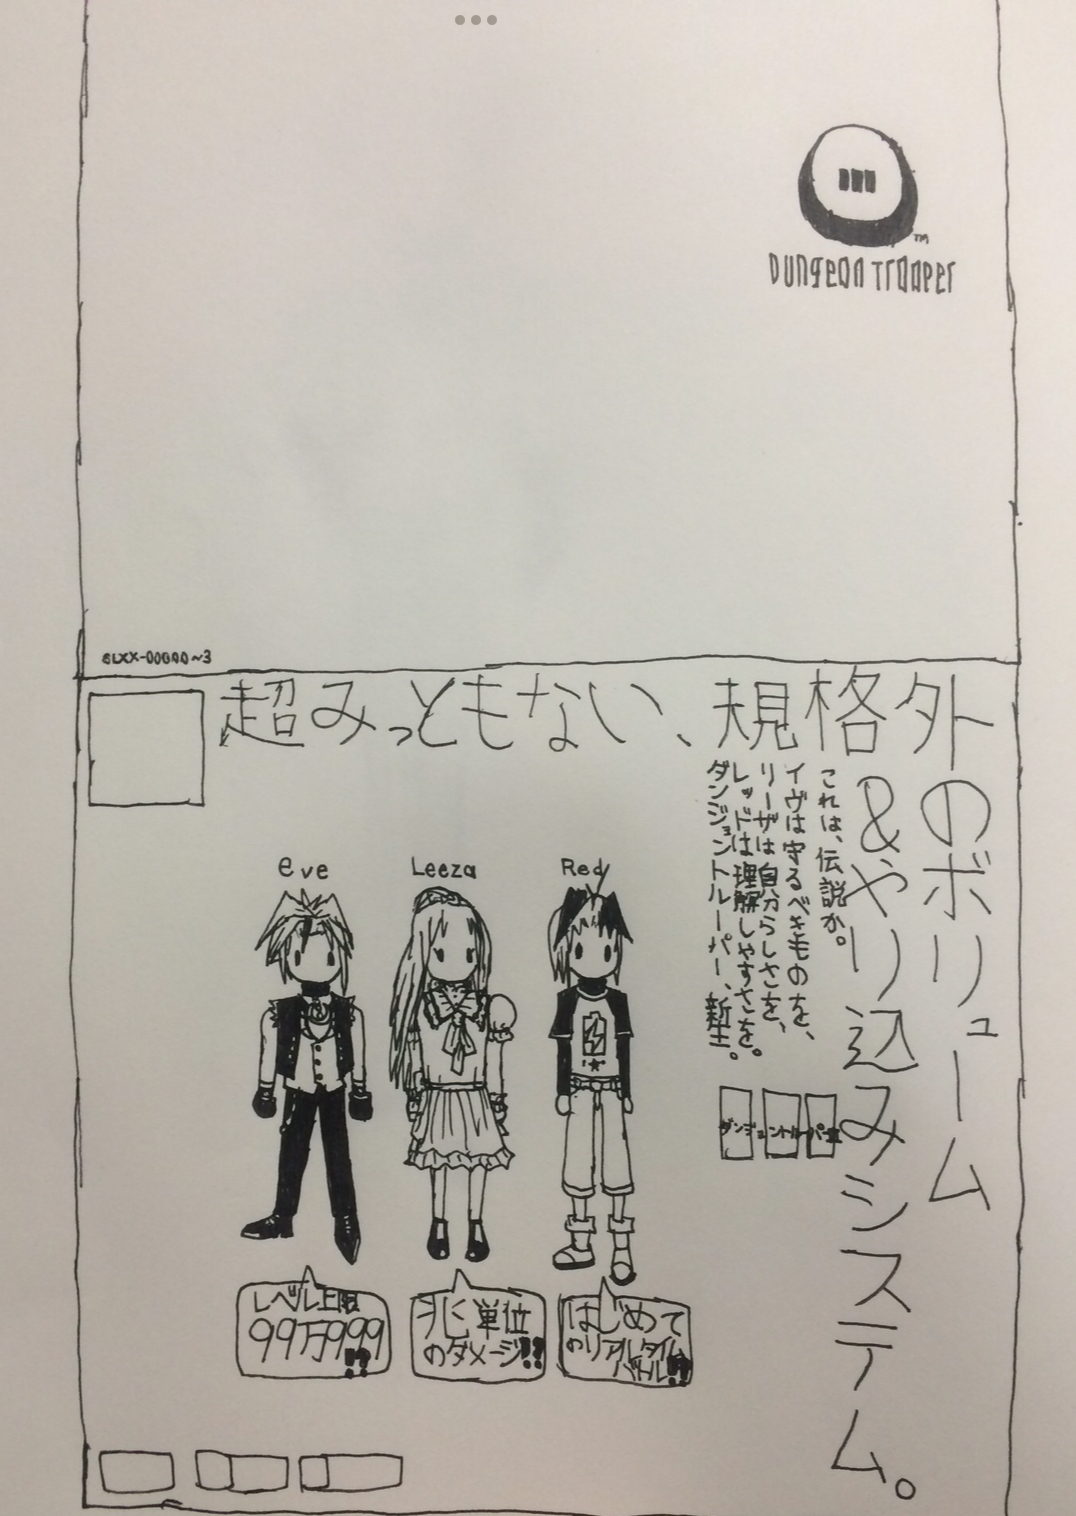 TM
Dungeon Trooper
SLXX-00000~3
超みっともない、規格外のボリューム
&やり込みシステム。
これは、伝説か。
イヴは守るべきものを、
リーザは自分らしさを、
レッドは理解しやすさを。
ダンジョントルーパー、新生。
eve
Leeza
Red
レベル上限
99万999
!?
兆単位
のダメージ!?
はじめて
のリアルタイム
バトル!?